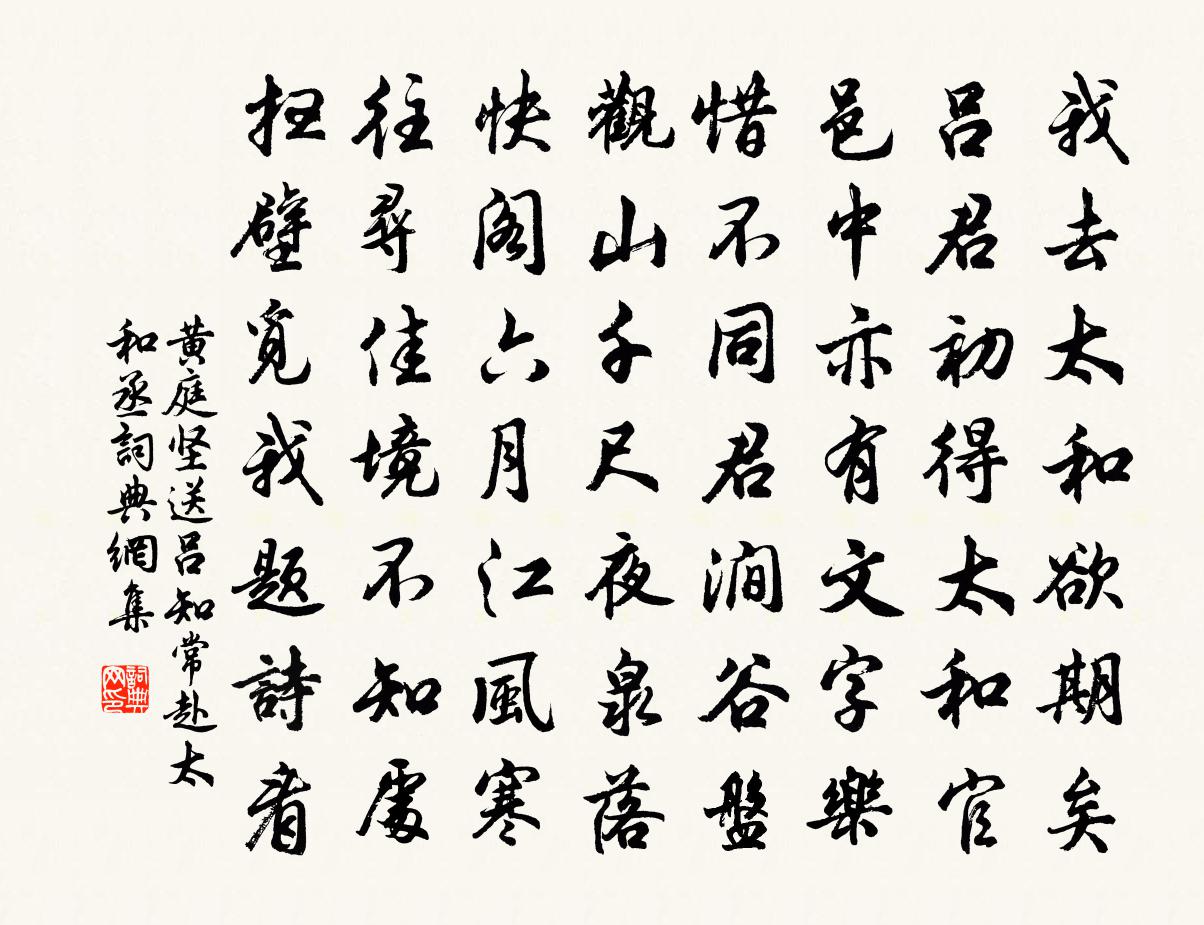 我去太和欲期矣
吕君初得太和官
邑中亦有文字樂
惜不同君澗谷盤
觀山千尺夜泉落
快阁六月江風寒
往尋佳境不知處
扫壁覓我题詩看
黄庭坚送吕知常赴太
和丞詞典網集
詞典
网印